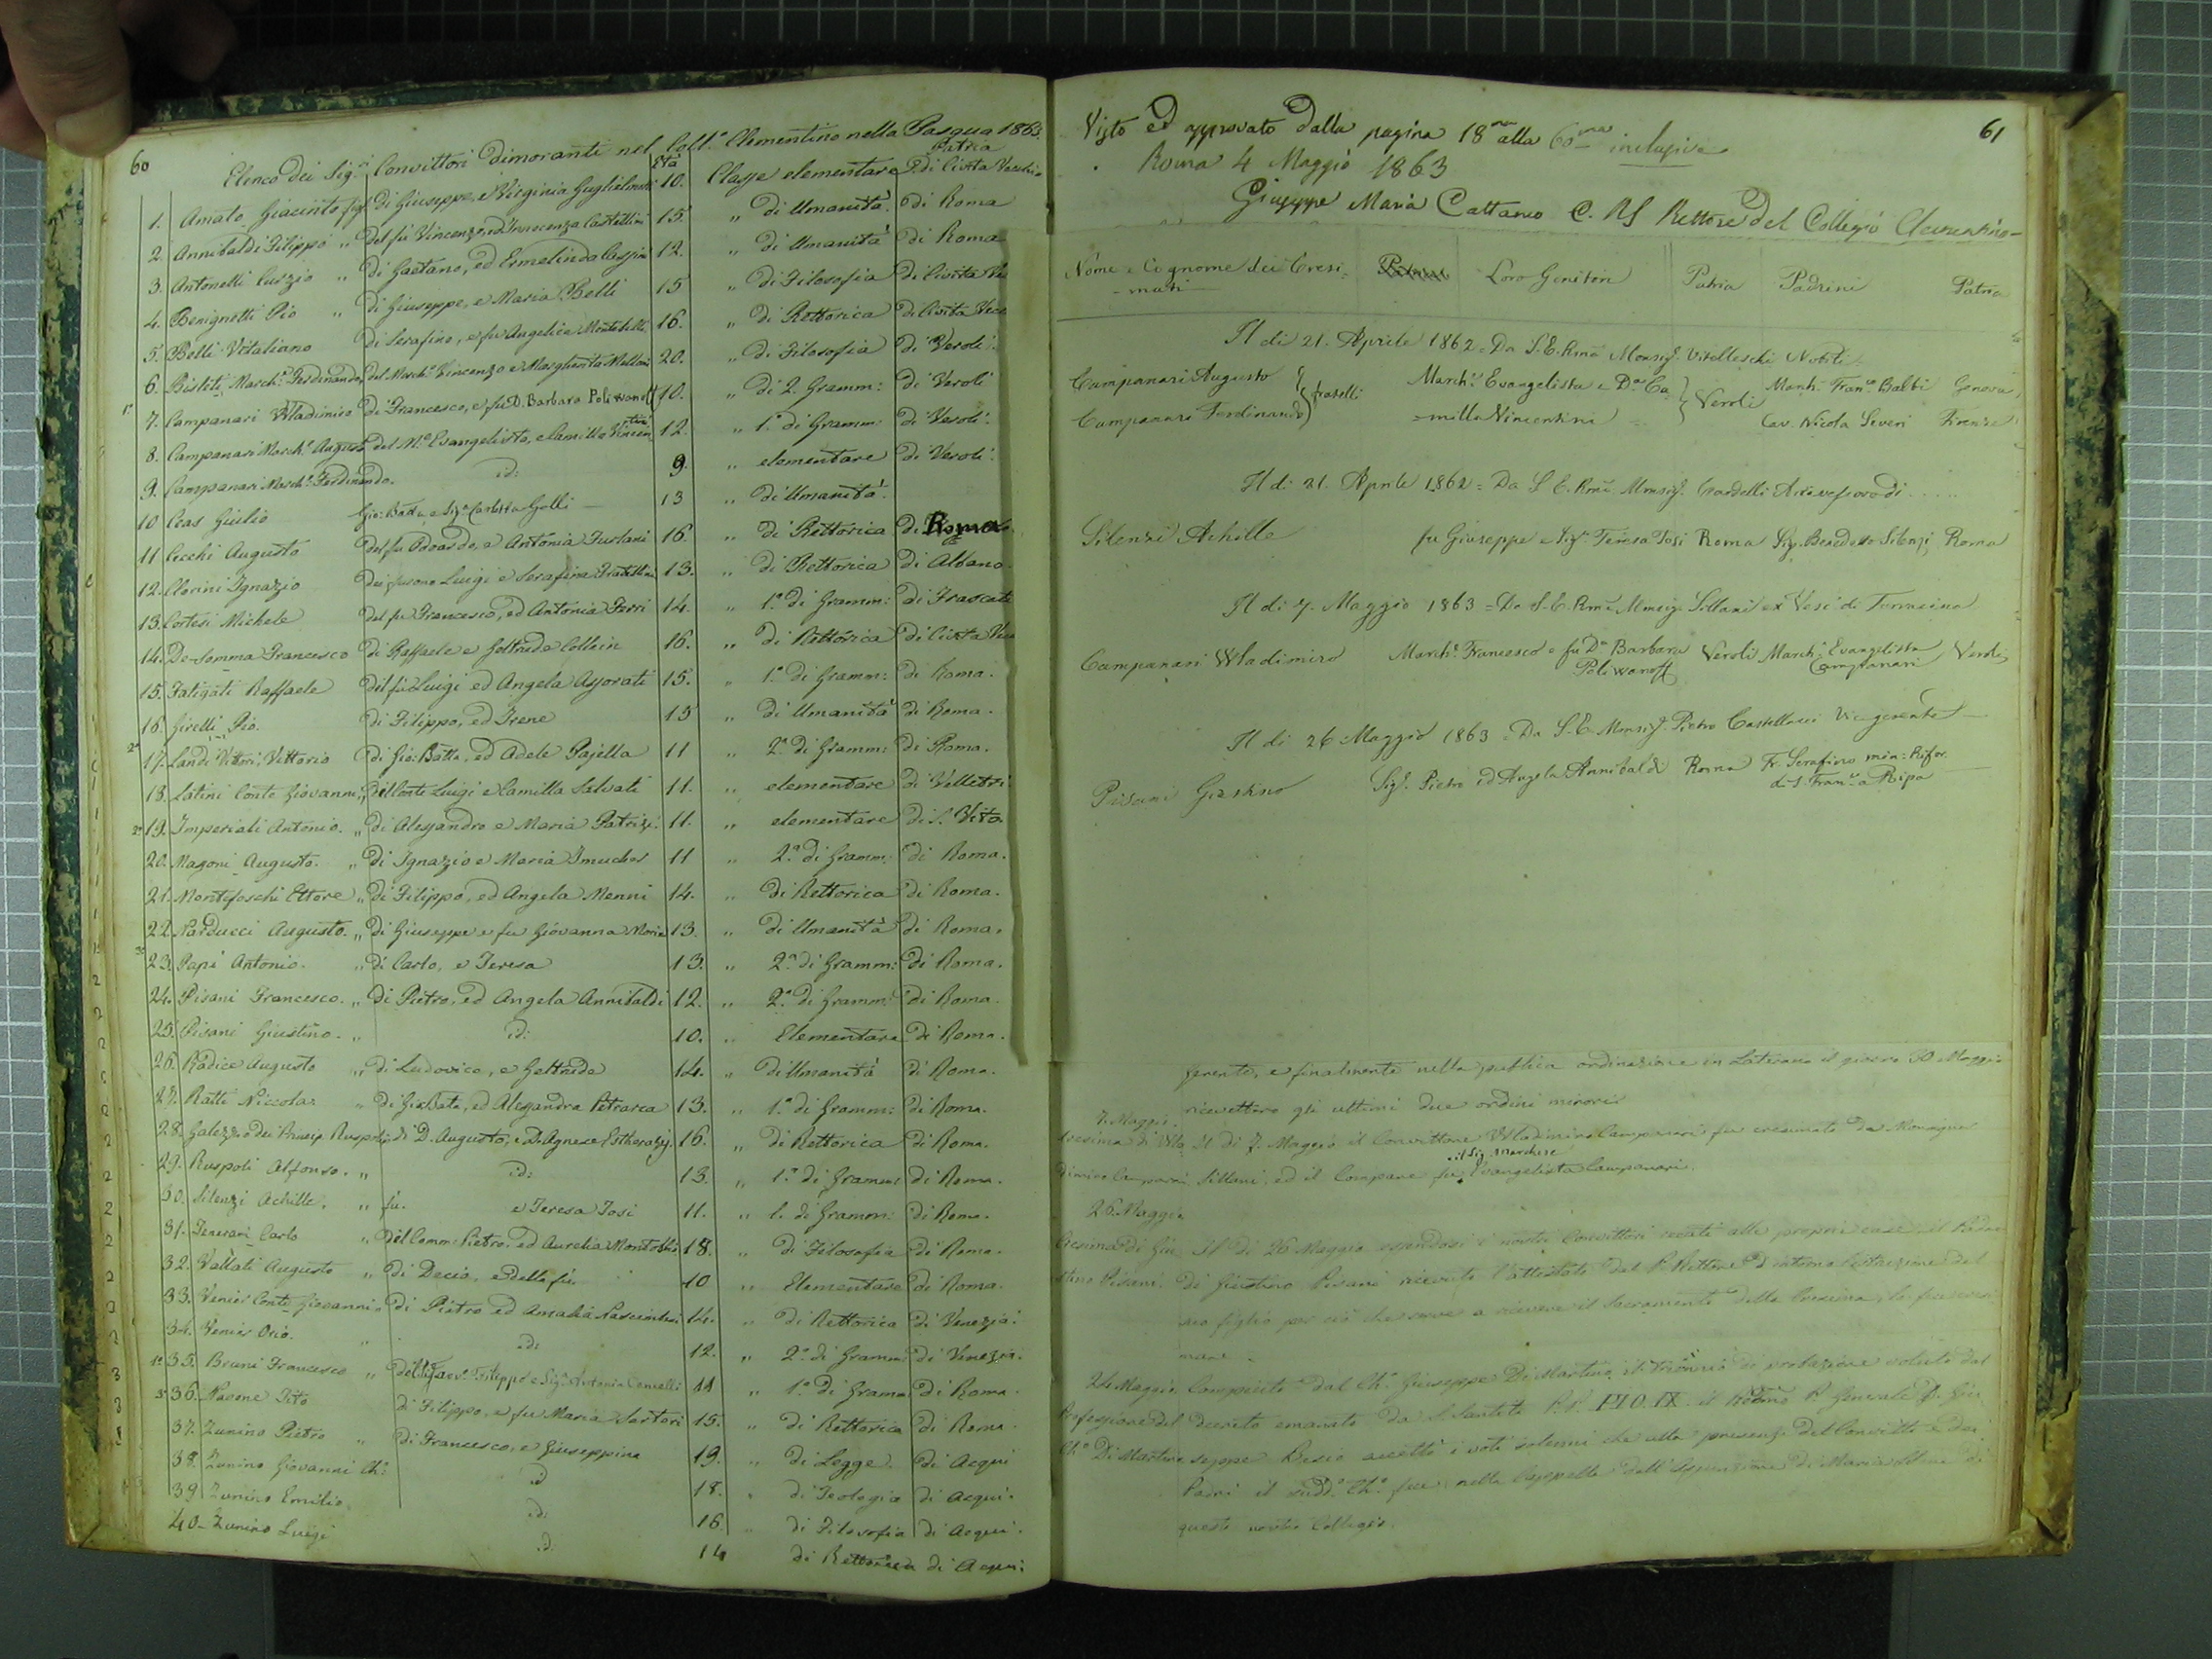 60
Elenco dei Sig.ri Convittori dimoranti nel Coll.o Clementino nella Pasqua 1863.
Età Patria
1. Amato Giacinto fig. di Giuseppe, e Virginia Guglielmotti 10. Classe elementare di Civita Vecchia
2. Annibaldi Filippo „ del fu Vincenzo, ed Innocenza Castellini 15. „ di Umanità. di Roma
3. Antonelli Curzio „ di Gaetano, ed Ermelinda 12. „ di Umanità di Roma
4. Benignetti Pio „ di Giuseppe, e Maria Belli 15 „ di Filosofia di Civita Ve
5. Belli Vitaliano di Serafino, e fu Angelica 16. „ di Rettorica di Civita Vecc
6. Bisleti March.e Ferdinando, del March.e Vincenzo e Margherita Melloni 20. „ di Filosofia di Veroli.
1.o 7. Campanari Wladimiro di Francesco, e fu D. Barbara Poliwanoff 10. „ di 2. Gramm: di Veroli
8. Campanari March.e Augusto del M.e Evangelista, e Camilla Vincentini 12. „ 1.a di Gramm: di Veroli.
9. Campanari March.e Ferdinando. id: 9. „ elementare di Veroli.
10 Ceas Giulio Gio: Batta e Sig.a Carlotta Galli 13 „ di Umanità.
11 Cecchi Augusto del fu Odoardo, e Antonia Furlani 16. „ di Rettorica di Roma
12. Clorini Ignazio dei furono Luigi e Serafina Fratellini 13. „ di Rettorica di Albano.
13. Cortesi Michele del fu Francesco, ed Antonia Ferri 14. „ 1.a di Gramm: di Frascati
14. De-Somma Francesco di Raffaele e Geltrude Collein 16. „ di Rettorica di Civita Vecc
15. Fatigati Raffaele del fu Luigi ed Angela Assorati 15. „ 1.a di Gramm: di Roma.
16. Girelli Pio. di Filippo, ed Irene 15 „ di Umanità di Roma.
2.o 17. Landi Vittori, Vittorio di Gio: Batta, ed Adele Pajella 11 „ 2.a di Gramm: di Roma.
18. Latini Conte Giovanni, del Conte Luigi e Camilla Salvati 11. „ elementare di Velletri.
19. Imperiali Antonio. „ di Alessandro e Maria Patrizi. 11. „ elementare di S. Vito.
20. Magoni Augusto. „ di Ignazio e Maria 11 „ 2.a di Gramm: di Roma.
21. Montefoschi Ettore „ di Filippo, ed Angela Menni 14. „ di Rettorica di Roma.
22. Narducci Augusto. „ di Giuseppe e fu Giovanna Moria 13. „ di Umanità di Roma.
23. Papi Antonio. „ di Carlo, e Teresa 13. „ 2.a di Gramm: di Roma.
24. Pisani Francesco. „ di Pietro, ed Angela Annibaldi 12. „ 2.a di Gramm: di Roma.
25. Pisani Giustino. „ id: 10. „ Elementare di Roma.
26. Radice Augusto „ di Ludovico, e Geltrude 14. „ di Umanità di Roma.
27. Ratti Niccola: „ di Gio:Bata, ed Alessandra Petrarca 13. „ 1.a di Gramm: di Roma.
28. Galezzo dei Princip. Ruspoli: di D. Augusto, e D. Agnese Estherazy. 16. „ di Rettorica di Roma.
29. Ruspoli Alfonso. „ id: 13. „ 1.a di Gramm: di Roma.
30. Silenzi Achille. „ fu. e Teresa Tosi 11. „ 1. di Gramm: di Roma.
31. Tenerani Carlo „ del Comm: Pietro, ed Aurelia Montobbio 18. „ di Filosofia di Roma.
32. Vallati Augusto „ di Decio, e della fu. 10 „ Elementare di Roma.
33. Venier Conte Giovanni „ di Pietro ed Amalia 14. „ di Rettorica di Venezia.
34. Venier Orio. „ id: 12. „ 2.a di Gramm: di Venezia.
1.o 35. Bruni Francesco „ Filippo e Sig.a Antonia Cancelli 11 „ 1.a di Gramm di Roma.
36. Nacone Tito di Filippo, e fu Maria Sartori 15. „ di Rettorica di Roma.
37. Zunino Pietro „ di Francesco, e Giuseppina 19. „ di Legge. di Acqui
38. Zunino Giovanni Ch: id 18. „ di Teologia di Acqui.
39 Zunino Emilio. id: 16. „ di Filosofia di Acqui.
40. Zunino Luigi id. 14 di Rettorica di Acqui.
61
Visto ed approvato dalla pagina 18ma alla 60ma inclusive
Roma 4 Maggio 1863
Giuseppe Maria Cattaneo C. R S Rettore del Collegio Clementino
Nome e Cognome dei Cresi= Loro Genitori Patria Padrini Patria
-mati
Il di 21. Aprile 1862. Da S. E. Rma Monsig.r Vitelleschi Nobili
Campanari Augusto } fratelli March.e Evangelista e D.a Ca } Veroli March. Fran.co Balbi Genova
Campanari Ferdinando =milla Vincentini Cav. Nicola Severi Firenze
Il di 21. Aprile 1862 = Da S. E. Rma Monsig.r Arcivescovo di .....
Silenzi Achille fu Giuseppe e Sig.a Teresa Tosi Roma Sig. Benedetto Silenzi Roma
Il di 7. Maggio 1863 = Da S. E. Rma Monsig.r Sillani ex Vesc. di Terracina
Campanari Wladimiro March.e Francesco e fu D.a Barbara Veroli March.e Evangelista Veroli
Poliwanoff Campanari
Il di 26 Maggio 1863 = Da S. E. Monsig.r Pietro Castellacci Vicegerente
Pisani Giustino Sig.r Pietro ed Angela Annibaldi Roma Fr. Serafino min: Rifor.
di S. Fran.co a Ripa
gerente, e finalmente nella publica ordinazione in Laterano il giorno 30 Maggio
ricevettero gli ultimi due ordini minori.
7. Maggio.
Cresima di Wla Il di 7. Maggio il Convittore Wladimiro Campanari fu cresimato da Monsignor
il Sig. Marchese
dimiro Campanari. Sillani, ed il Compare fu Evangelista Campanari.
26. Maggio
Cresima di Giu Il di 26 Maggio essendosi i nostri Convittori recati alle proprie case il Padre
stino Pisani. di Giustino Pisani ricevuto l'attestato dal P. Rettore d'intorno l'istruzione del
suo figlio per ciò che serve a ricevere il Sacramento della Cresima, lo fece cresi
mare.
24 Maggio. Compiuto dal Ch.o Giuseppe Di Martino il triennio di probazione voluto dal
Professione del decreto emanato da S. Santità P.P. PIO IX. il Rdmo P. Generale D. Giu
Ch.o Di Martino seppe Besio accettò i voti solenni che alla presenza del Convitto e dei
Padri il sudd.o Ch.o fece nella Cappella dell'Assunzione di Maria SSma di
questo nostro Collegio.